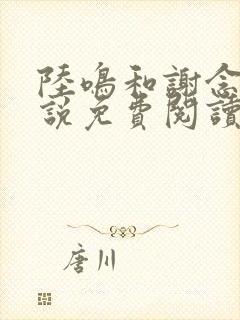 陸鳴和謝念
說免費閱讀
唐川